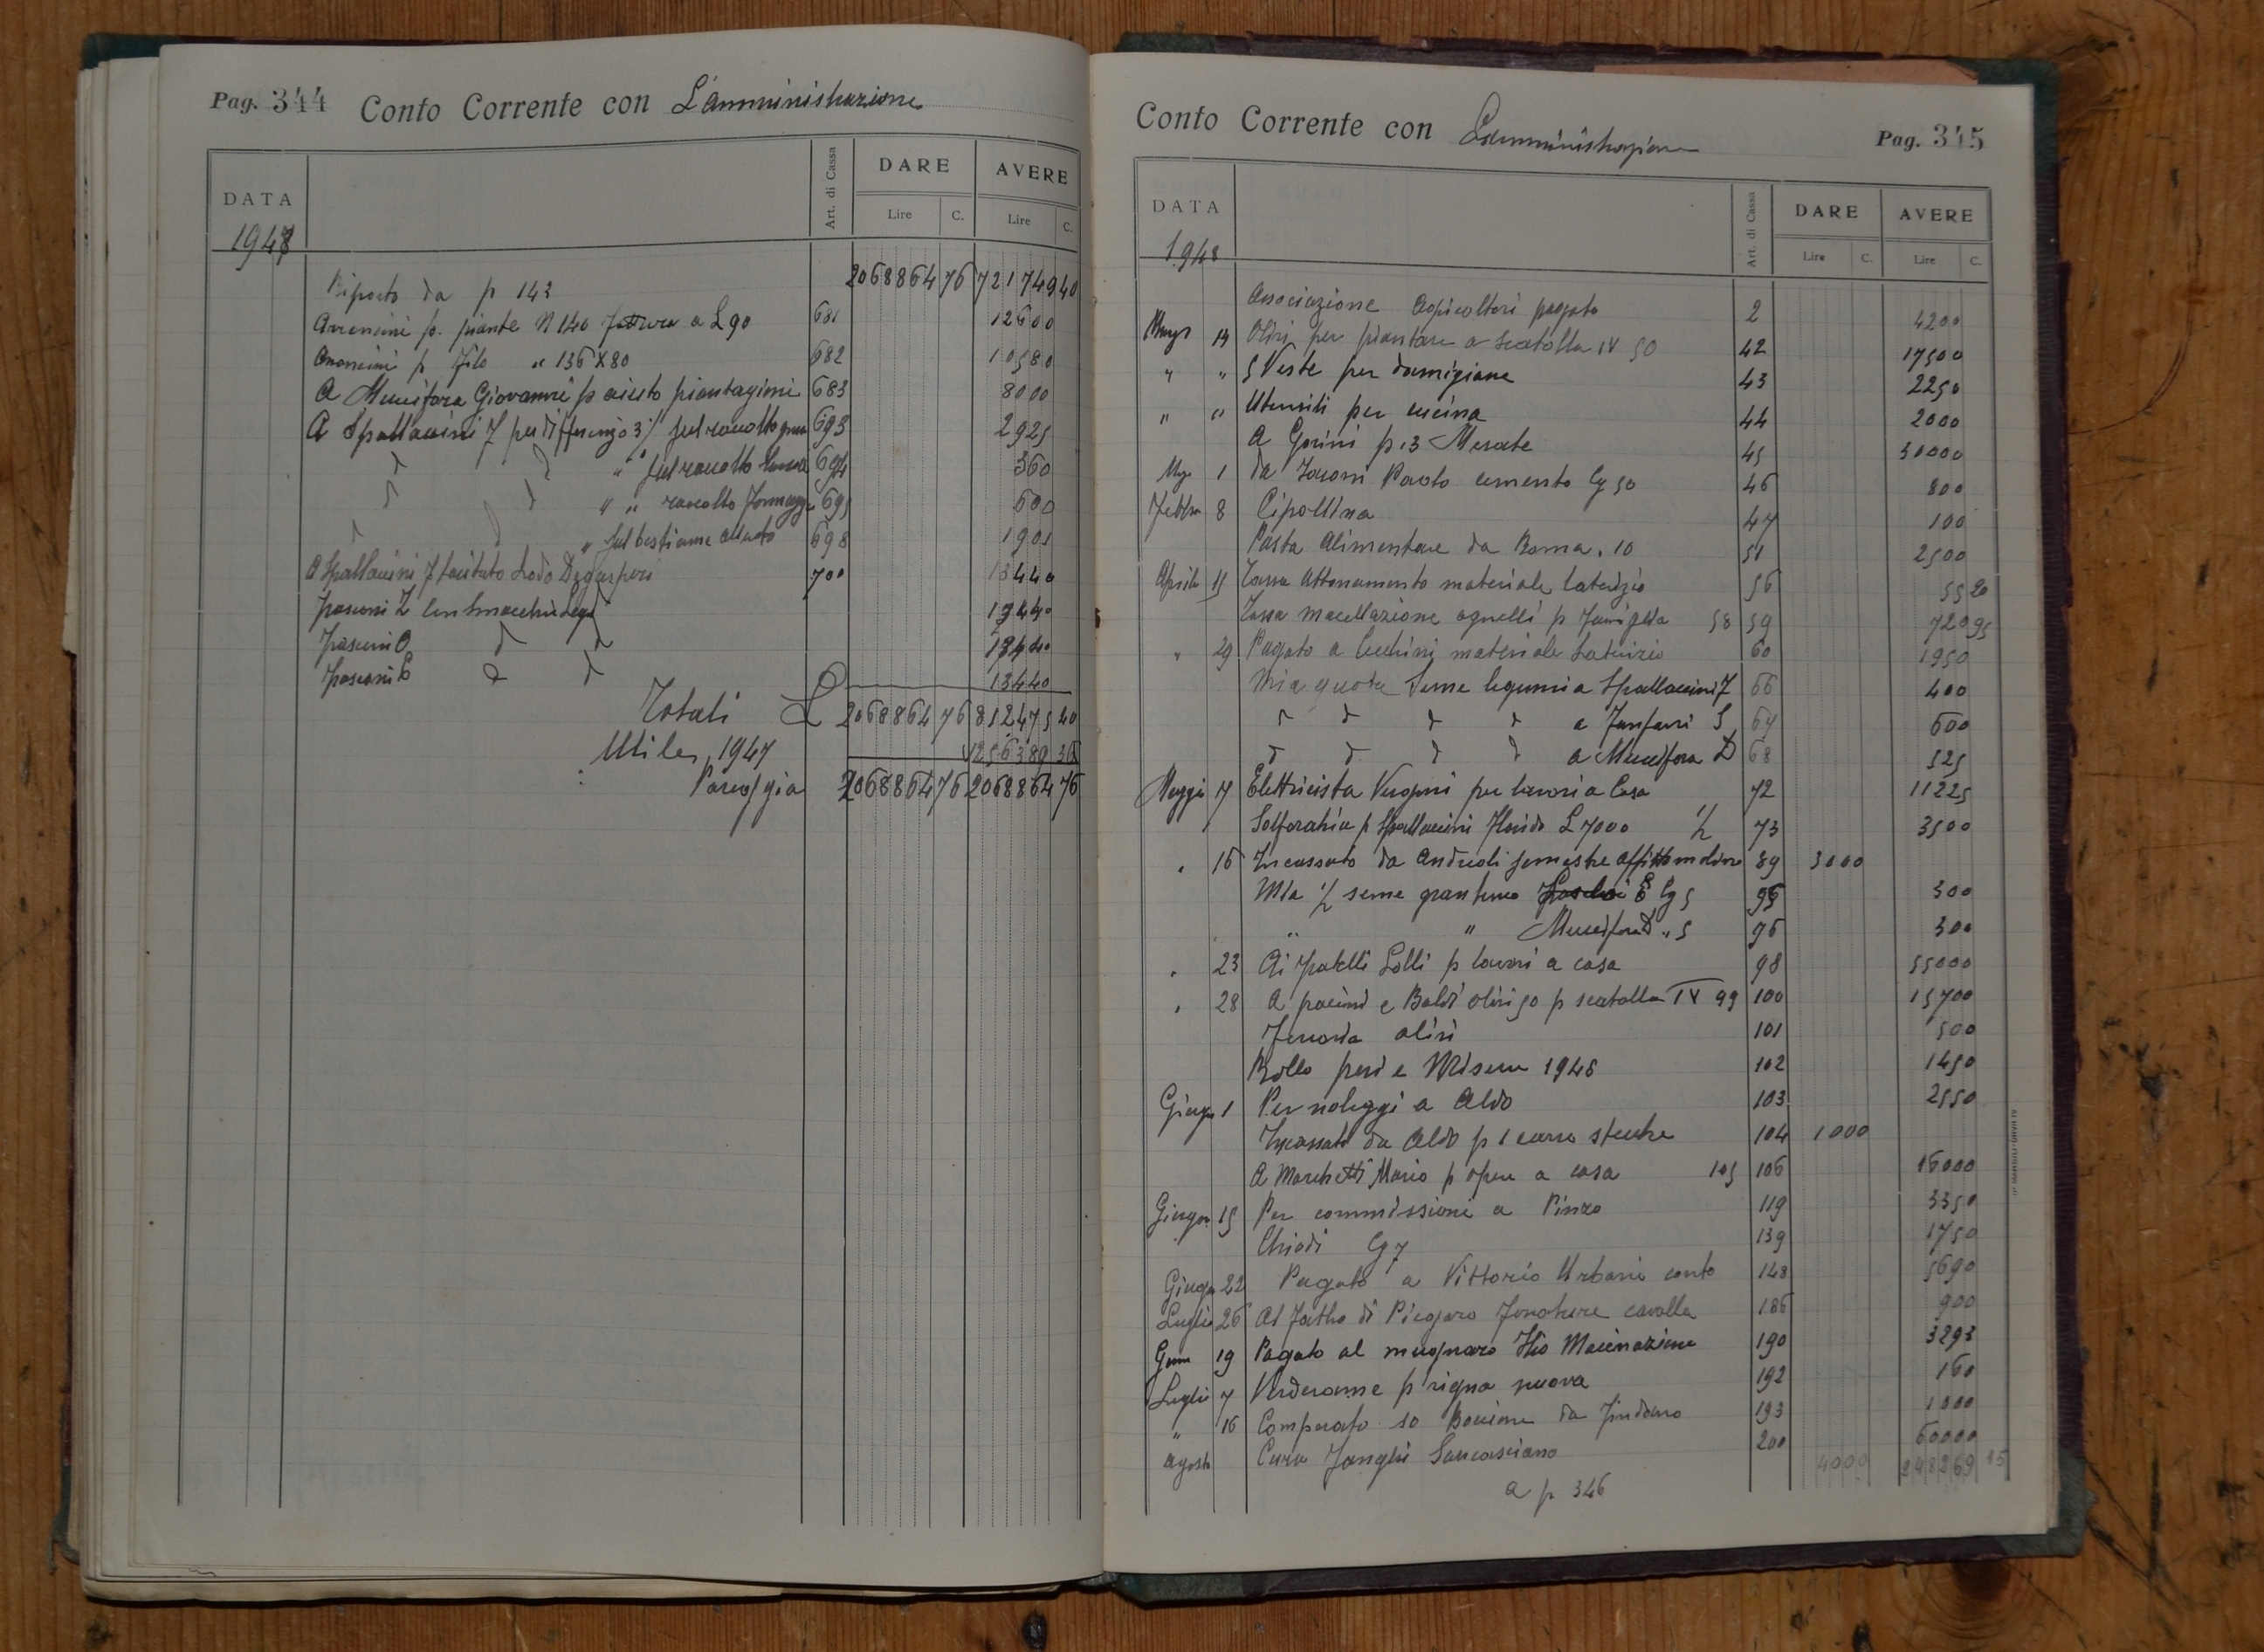 Pag. 344 Conto Corrente con L'amministrazione
DATA Art. di Cassa DARE AVERE
Lire C. Lire C.
1947
Riporto da p 143 2068864 76 721749 40
p. piante N 140 a L 90 681 12600
p filo " 136 X 80 682 10580
A Mencifora Giovanni p aiuto piantagioni 683 8000
A Spallaccini F per differenza 3% sul raccolto grano 693 2925
" sul raccolto lana 694 360
" " raccolto formaggi 695 600
" sul bestiame 698 1901
A Spallaccini F lodo Degasperi 700 13440
13440
13440
13440
Totali L 2068864 76 812475 40
Utile 1947 1256389 36
Pareggia 2068864 76 2068864 76
Conto Corrente con L'amministrazione Pag. 345
DATA Art. di Cassa DARE AVERE
Lire C. Lire C.
1948
Associazione Agricoltori pagato 2 4200
Marzo 14 Olivi per piantare a scatolla IV 50 42 17500
" " 5 Veste per damigiane 43 2250
" " Utensili per cucina 44 2000
A Gorini p. 3 45 30000
1 da Paolo cemento Cg 50 46 800
Febbra 8 Cipollina 47 100
Pasta Alimentare da Roma . 10 51 2500
Aprile 15 Tassa materiale laterizio 56 55 20
Tassa macellazione agnelli p famiglia 58 59 720 95
" 29 Pagato a Cecchini materiale laterizio 60 1950
Mia quota seme legumi a Spallaccini F 66 400
a Fanfani S 67 600
a Mencifora D 68 525
Maggio 17 Elettricista Vergoni per lavori a Casa 72 11225
Solforatrice p Spallaccini Florido L 7000 ½ 73 3500
" 16 Incassato da Andreoli semestre affitto molino 89 3000
Mia ½ seme granturco E Cg 5 95 300
" " Mencifora D " 5 96 300
" 23 Ai fratelli Lolli p lavori a casa 98 55000
" 28 A pacini e Baldi olivi 50 p scatolla IV 99 100 15700
olivi 101 500
Bollo pesi e Misure 1948 102 1450
Giugno 1 Per noleggi a Aldo 103 2550
Incassato da Aldo p 1 carro 104 1000
A Marchetti Mario p opere a casa 105 106 16000
Giugno 15 Per commissione a Pinzo 119 3350
Chiodi Cg 7 139 1750
Giugno 22 Pagato a Vittorio Urbani conto 148 5690
Luglio 26 Al fabbro di Piegaro ferrature cavalla 186 900
19 Pagato al mugnaro Macinazione 190 3293
Luglio 7 Verderame p vigna nuova 192 160
" 16 Comperato 10 da 193 1000
agosto Cura Fanghi Sancasciano 200 60000
4000 248269 15
a p 346